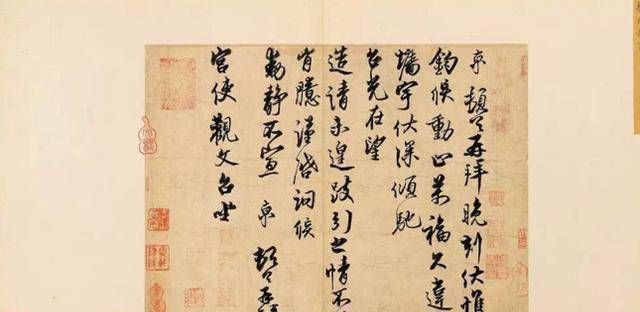 京頓首再拜晚刻伏惟
鈞候動止萬福久違
墻宇伏深傾馳
台光在望
造請未遑跂引之情不
胷臆謹啓詢候
動靜不宣 京 頓首再
宮使觀文台坐